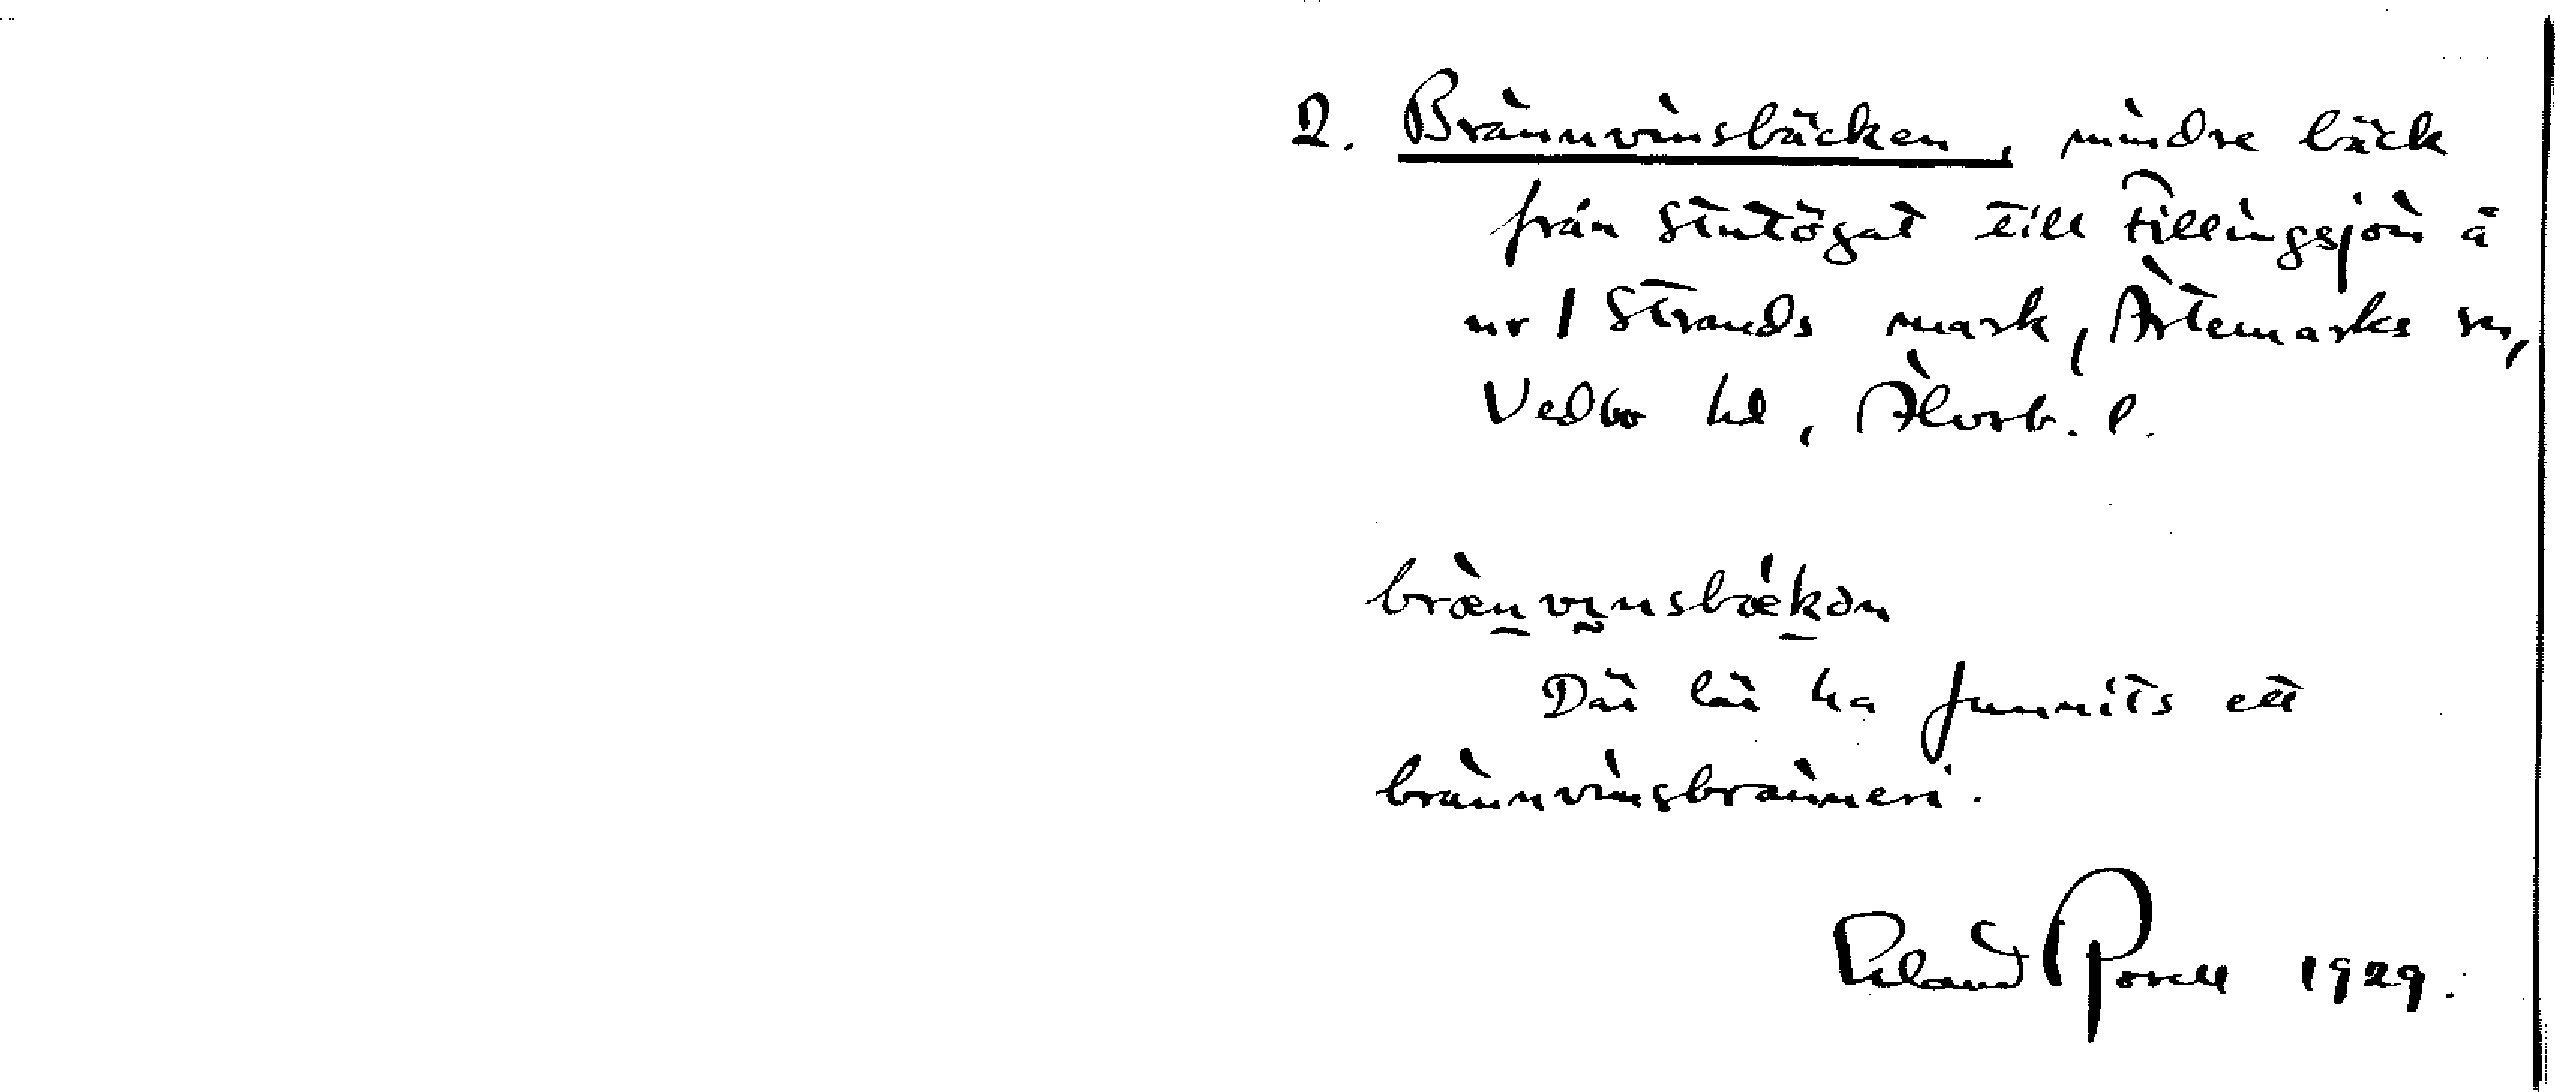 2. Brännvinsbäcken, mindre bäck
från Stutögat till Tillingsjön å
nr 1 Strands mark, Ärtemarks sn,
Vedbo hd, Älvsb. l.
bræ̀nvinsbǽkən
Där lär ha funnits ett
brännvinsbränneri.
Erland Rosell 1929.